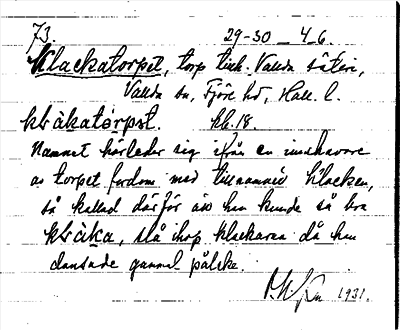 73.
29-30 4.6.
Klackatorpet, torp tillh. Vallda säteri,
Vallda sn, Fjäre hd, Hall. l.
klákatòrpət. kb. 18.
Namnet härleder sig ifrån en innehavare
av torpet fordom med tillnamnet Klacken,
så kallad därför att han kunde så bra
klákа, slå ihop klackarna då han
dansade gammel pålska.
1931.